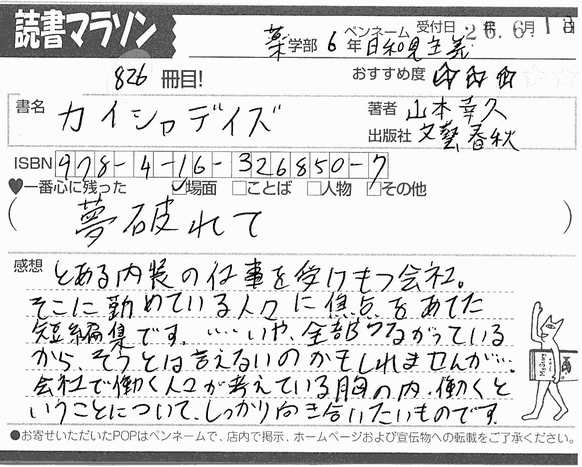 読書マラソン
薬学部 6年 ペンネーム 日和見主義 受付日 26.6.
826 冊目! おすすめ度 ☆☆☆
書名 カイシャデイズ
著者 山本幸久
出版社 文藝春秋
ISBN 978-4-16-326850-7
♥一番心に残った ☑場面 □ことば □人物 □その他
(夢破れて)
感想 とある内装の仕事を受けもつ会社。
そこに勤めている人々に焦点をあてた
短編集です。……いや、全部つながっている
から、そうとは言えないのかもしれませんが…。
会社で働く人々が考えている胸の内、働くと
いうことについて、しっかり向き合いたいものです。
●お寄せいただいたPOPはペンネームで、店内で掲示、ホームページおよび宣伝物への転載をご了承ください。